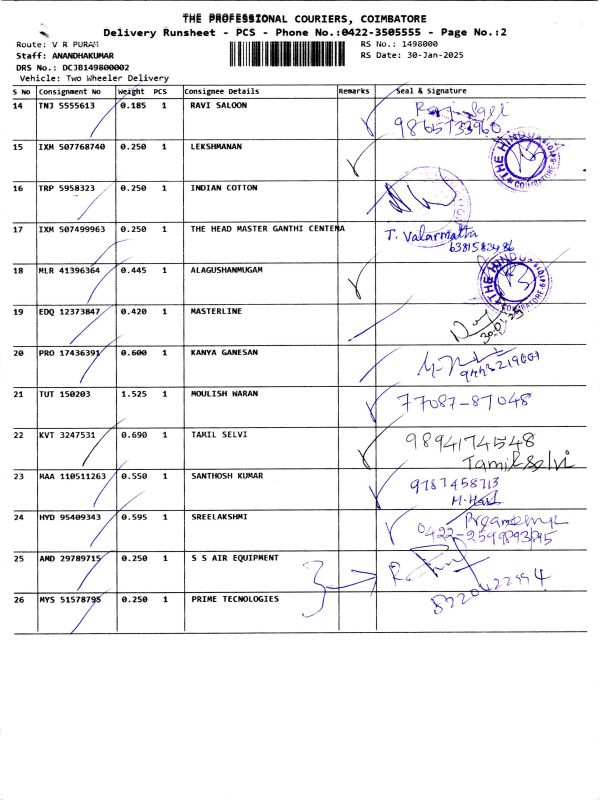 THE PROFESSIONAL COURIERS, COIMBATORE
Delivery Runsheet - PCS - Phone No.:0422-3505555 - Page No.:2
Route: V R PURAM
RS No.: 1498000
Staff: ANANDHAKUMAR
RS Date: 30-Jan-2025
DRS No.: DCJB149800002
Vehicle: Two Wheeler Delivery
S No Consignment No Weight PCS Consignee Details Remarks Seal & Signature
14 TNJ 5555613 0.185 1 RAVI SALOON
15 IXM 507768740 0.250 1 LEKSHMANAN
THE HINDU
16 TRP 5958323 0.250 1 INDIAN COTTON
17 IXM 507499963 0.250 1 THE HEAD MASTER GANTHI CENTENA T. Valarmathi
6381583486
18 MLR 41396364 0.445 1 ALAGUSHANMUGAM
THE HINDU
19 EDQ 12373847 0.420 1 MASTERLINE
30.01.25
20 PRO 17436391 0.600 1 KANYA GANESAN
21 TUT 150203 1.525 1 MOULISH WARAN 77087-87048
22 KVT 3247531 0.690 1 TAMIL SELVI 9894174548
Tamilselvi
23 MAA 110511263 0.550 1 SANTHOSH KUMAR 9787458713
24 HYD 95409343 0.595 1 SREELAKSHMI
25 AMD 29789715 0.250 1 S S AIR EQUIPMENT
26 MYS 51578795 0.250 1 PRIME TECNOLOGIES 8220422994